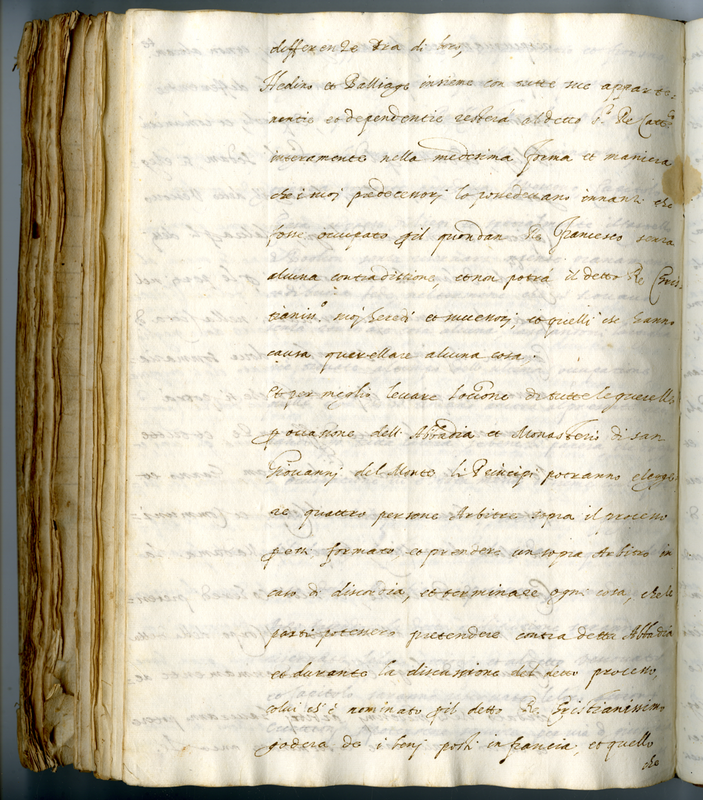 differenze tra di loro,
Hedino et Balliage insieme con tutte sue apparte=
nentie et dependentie resterà al detto S.r Re Catt.co
interamente nella medesima forma et maniera
che i suoi predecessori lo possedevano innanzi che
fosse occupato p il quondan Re Francesco senza
alcuna contraditione, et non potrà il detto Re Cris=
tianiss.o suoi heredi et successori, et quelli che hanno
causa querellare alcuna cosa.
Et per meglio levare l'occasione di tutte le querelle
p occasione dell'Abbadia et Monasterio di san
Giovannj del Monte li Principi potranno elegge=
re quattro persone Arbitre sopra il processo
p essi formato et prendere un sopra Arbitro in
caso di discordia, et terminare ogni cosa, che le
parti potessero pretendere contra detta Abbadia
et durante la discussione del detto processo
colui ch'è nominato p il detto Re Cristianissimo
goderà de i benj posti in francia, et quello
che